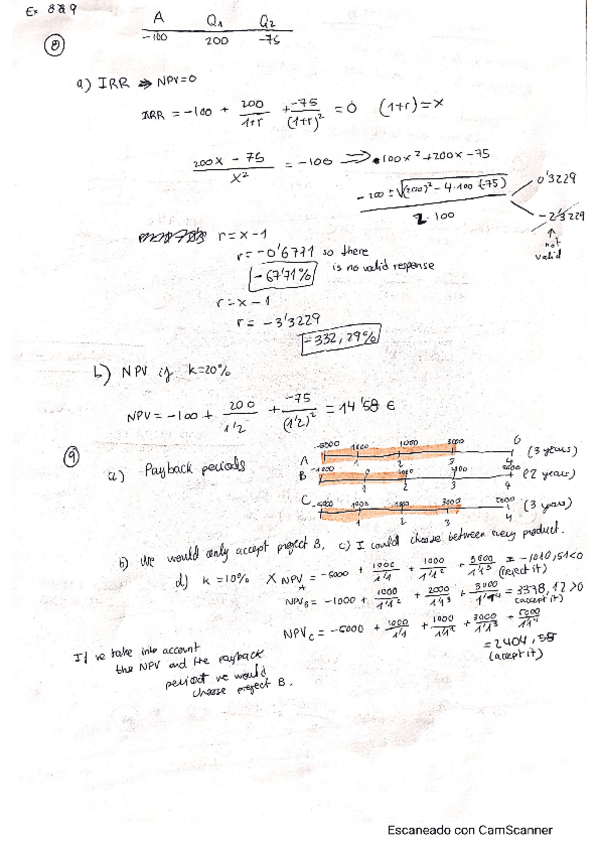 Ex 8&9
A Q1 Q2
⑧ -100 200 -75
a) IRR ⇒ NPV=0
IRR = -100 + 200/(1+r) + -75/(1+r)^2 = 0 (1+r) = x
(200x - 75)/x^2 = -100 ⟹ 100x^2 + 200x - 75
(-200 ± √((200)^2 - 4·100·(-75)))/(2·100)
0'3229
-2'3229
↑
not
valid
r = x-1
r = -0'6771 so there
is no valid response
-67'71%
r = x-1
r = -3'3229
-332,29%
b) NPV if k=20%
NPV = -100 + 200/1'2 + -75/(1'2)^2 = 14'58 €
⑨
a) Payback periods
-5000 1000 1000 3000 0
A 1 2 3 4 (3 years)
-1000 0 1000
B 1 2 3 4 (2 years)
-5000 1000 1000 3000 5000
C 1 2 3 4 (3 years)
b) We would only accept project B. c) I could choose between every product.
d) k=10% X NPV_A = -5000 + 1000/1'1 + 1000/1'1^2 + 3000/1'1^3 = -1010,51<0
(reject it)
NPV_B = -1000 + 1000/1'1^2 + 2000/1'1^3 + 3000/1'1^4 = 3378,12 >0
(accept it)
NPV_C = -5000 + 1000/1'1 + 1000/1'1^2 + 3000/1'1^3 + 5000/1'1^4
= 2404,55
(accept it)
If we take into account
the NPV and the payback
period we would
choose project B.
Escaneado con CamScanner